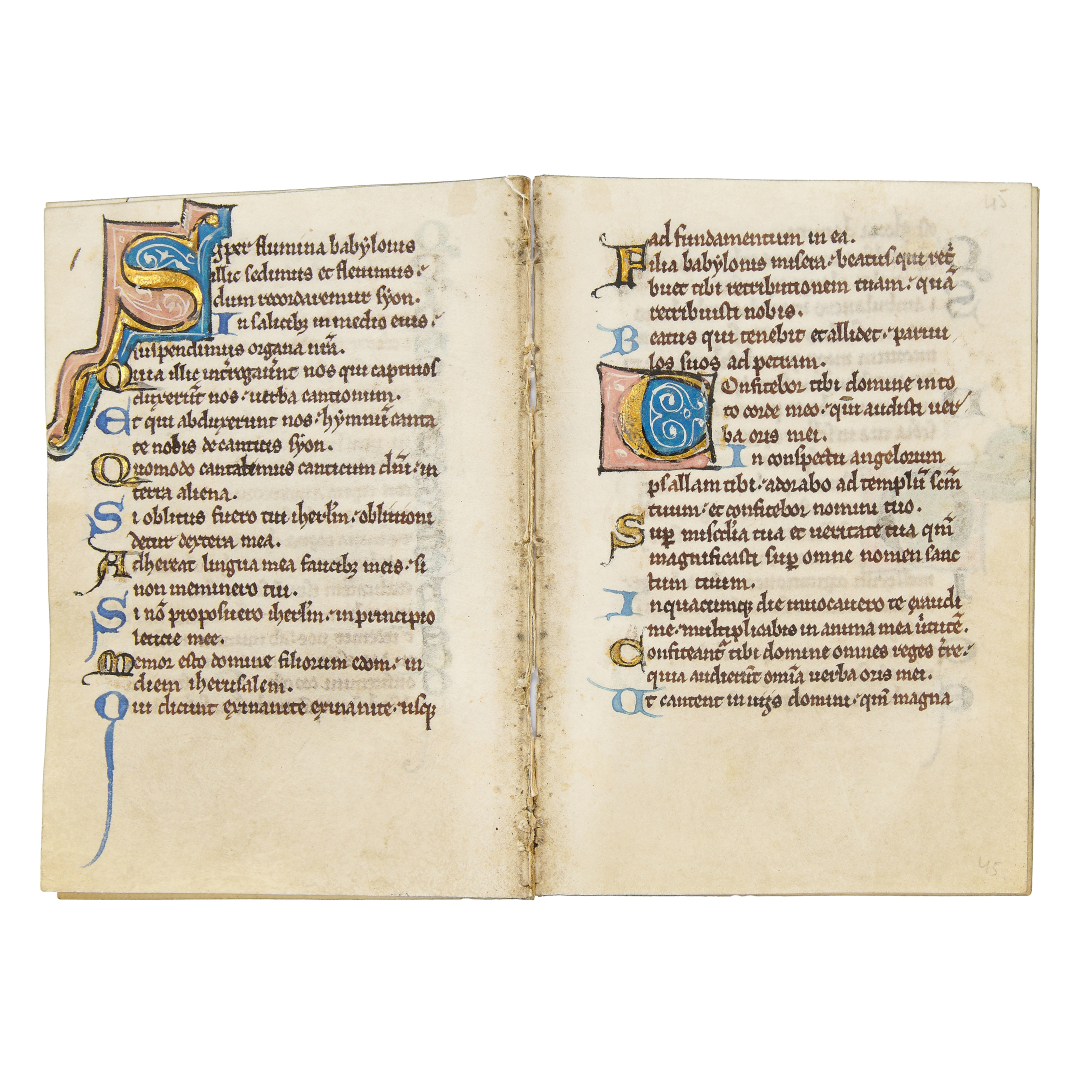 Super flumina babylonis
illic sedimus et fleuimus·
dum recordaremur syon.
In salicibȝ in medio eius·
suspendimus organa nr̃a.
Quia illic int̾rogauer̃t nos qui captiuos
duxerũt nos· uerba cantionum.
Et qui abduxerunt nos· hỹmnũ canta
te nobis de canticis syon.
Quomodo cantabimus canticum dñi· in
terra aliena.
Si oblitus fuero tui iherl̃m· obliuioni
detur dextera mea.
Adhereat lingua mea faucibȝ meis· si
non meminero tui.
Si nõ proposuero iherl̃m· in principio
leticie mee.
Memor esto domine filiorum edom· in
diem iherusalem.
Qui dicunt exinanite exinanite· usqȝ
45
ad fundamentum in ea.
Filia babylonis misera· beatus qui ret̾
buet tibi retributionem tuam· quã
retribuisti nobis.
Beatus qui tenebit et allidet· paruu
los suos ad petram.
Confitebor tibi domine in to
to corde meo· qm̃ audisti uer
ba oris mei.
In conspectu angelorum
psallam tibi· adorabo ad templũ scm̃
tuum· et confitebor nomini tuo.
Sup̱ miscd̾ia tua et ueritate tua qm̃
magnificasti sup̱ omne nomen sanc
tum tuum.
In quacumqȝ die inuocauero te exaudi
me· multiplicabis in anima mea uirtutẽ.
Confiteant̃ tibi domine omnes reges t̾re·
quia audierũt omĩa uerba oris mei.
Et cantent in uiis domini· qm̃ magna
45